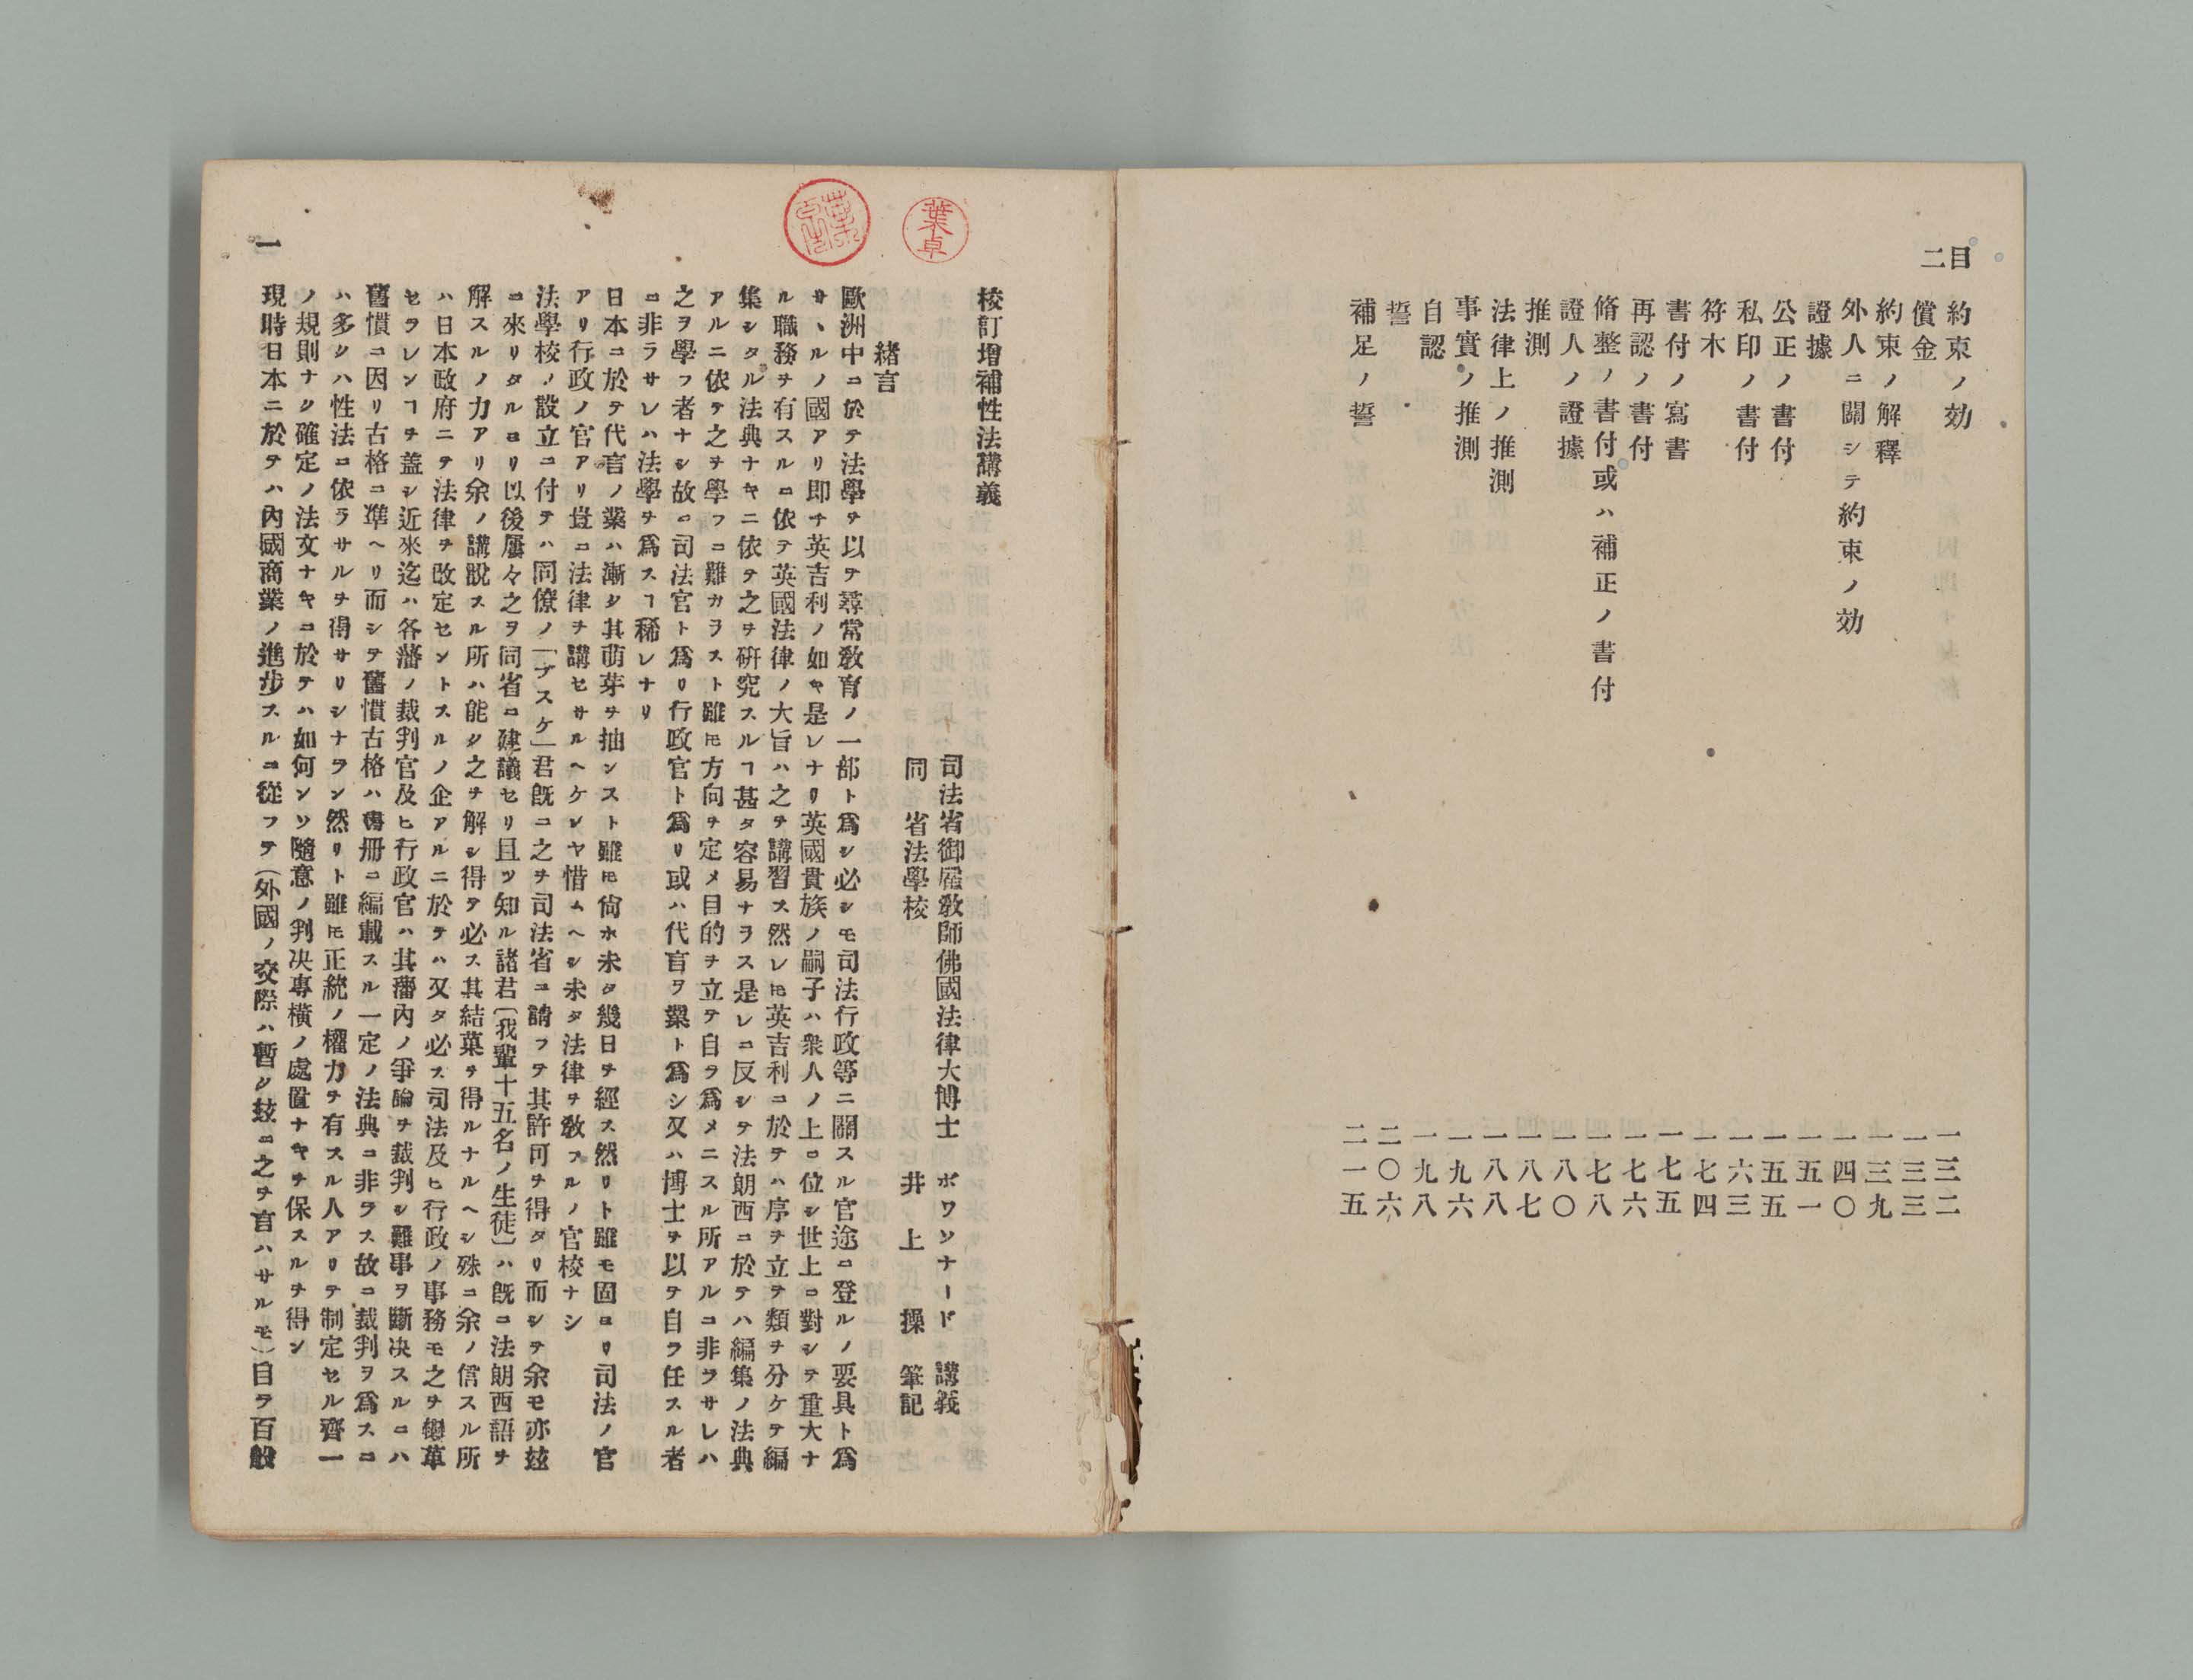 目二
約束ノ効 一三二
償金 一三三
約束ノ解釋 一三九
外人ニ關シテ約束ノ効 一四〇
證據 一五一
公正ノ書付 一五五
私印ノ書付 一六三
符木 一七四
書付ノ寫書 一七五
再認ノ書付 一七六
脩整ノ書付或ハ補正ノ書付 一七八
證人ノ證據 一八〇
推測 一八七
法律上ノ推測 一八八
事實ノ推測 一九六
自認 一九八
誓 二〇六
補足ノ誓 二一五
葉卓
校訂增補性法講義
司法省御雇敎師佛國法律大博士 ボワソナード 講義
同 省法學校 井上操 筆記
緒言
歐洲中ニ於テ法學ヲ以テ尋常敎育ノ一部ト爲シ必シモ司法行政等ニ關スル官途ニ登ルノ要具ト爲
サヽルノ國アリ即チ英吉利ノ如キ是レナリ英國貴族ノ嗣子ハ衆人ノ上ニ位シ世上ニ對シテ重大ナ
ル職務ヲ有スルニ依テ英國法律ノ大旨ハ之ヲ講習ス然レ𪜈英吉利ニ於テハ序ヲ立テ類ヲ分ケテ編
集シタル法典ナキニ依テ之ヲ硏究スルヿ甚タ容易ナラス是レニ反シテ法朗西ニ於テハ編集ノ法典
アルニ依テ之ヲ學フニ難カラスト雖𪜈方向ヲ定メ目的ヲ立テ自ラ爲メニスル所アルニ非ラサレハ
之ヲ學フ者ナシ故ニ司法官ト爲リ行政官ト爲リ或ハ代言ヲ業ト爲シ又ハ博士ヲ以テ自ラ任スル者
ニ非ラサレハ法學ヲ爲スヿ稀レナリ
日本ニ於テ代言ノ業ハ漸ク其萠芽ヲ抽ンスト雖𪜈尙ホ未タ幾日ヲ經ス然リト雖モ固ヨリ司法ノ官
アリ行政ノ官アリ豈ニ法律ヲ講セサルヘケンヤ惜ムヘシ未タ法律ヲ敎フルノ官校ナシ
法學校ノ設立ニ付テハ同僚ノ「ブスケ」君旣ニ之ヲ司法省ニ請フテ其許可ヲ得タリ而シテ余モ亦玆
ニ來リタルヨリ以後屢々之ヲ同省ニ建議セリ且ツ知ル諸君〔我輩十五名ノ生徒〕ハ旣ニ法朗西語ヲ
解スルノ力アリ余ノ講說スル所ハ能ク之ヲ解シ得テ必ス其結菓ヲ得ルナルヘシ殊ニ余ノ信スル所
ハ日本政府ニテ法律ヲ改定セントスルノ企アルニ於テハ又タ必ス司法及ヒ行政ノ事務モ之ヲ變革
セラレンヿヲ盖シ近來迄ハ各藩ノ裁判官及ヒ行政官ハ其藩內ノ爭論ヲ裁判シ難事ヲ斷决スルニハ
舊慣ニ因リ古格ニ準ヘリ而シテ舊慣古格ハ書册ニ編載スル一定ノ法典ニ非ラス故ニ裁判ヲ爲スニ
ハ多クハ性法ニ依ラサルヲ得サリシナラン然リト雖𪜈正統ノ權力ヲ有スル人アリテ制定セル齊一
ノ規則ナク確定ノ法文ナキニ於テハ如何ンソ隨意ノ判决專橫ノ處置ナキヲ保スルヲ得ン
現時日本ニ於テハ內國商業ノ進步スルニ從フテ（外國ノ交際ハ暫ク玆ニ之ヲ言ハサルモ）自ラ百般
一